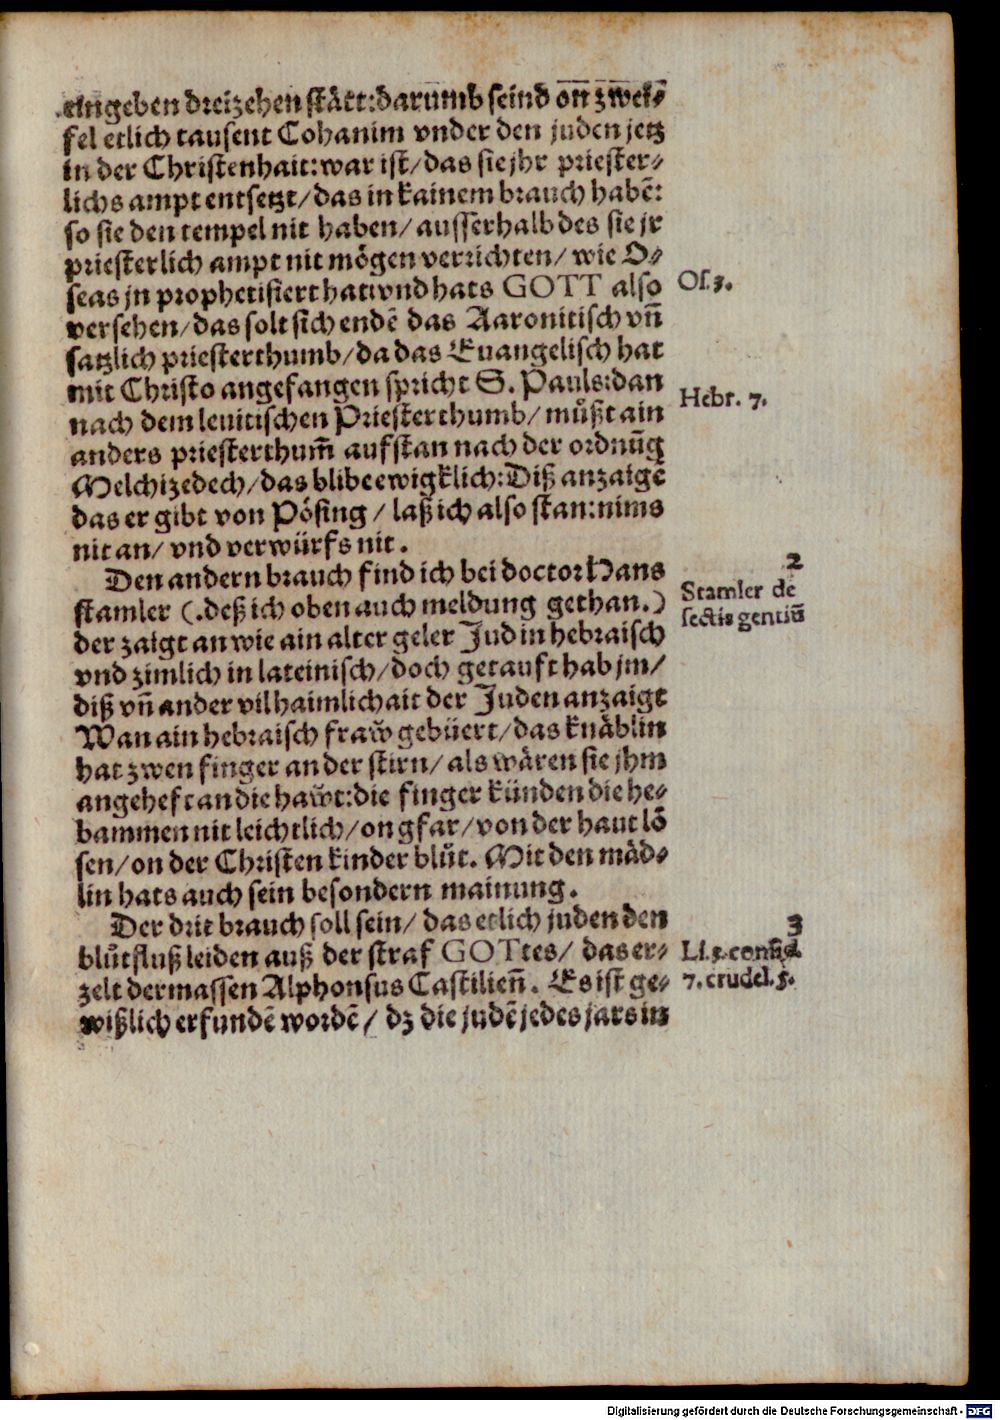 eingeben dreizehen stätt:darumb seind on̄ zwei⸗
fel etlich tausent Cohanim vnder den juden jetz
in der Christenhait:war ist/das sie jhr priester⸗
lichs ampt entsetzt/das in kainem brauch habē:
so sie den tempel nit haben/ausserhalb des sie jr
priesterlich ampt nit mögen verrichten/wie O⸗
seas jn prophetisiert hat:vnd hats GOTT also
Os.3.
versehen/das solt sich endē das Aaronitisch vn̄
satzlich priesterthumb/da das Euangelisch hat
mit Christo angefangen spricht S. Pauls:dan
Hebr. 7.
nach dem leuitischen Priesterthumb/mu̐ßt ain
anders priesterthum̄ aufstan nach der ordnūg
Melchizedech/das blibe ewigklich:Diß anzaigē
das er gibt von Pösing/laß ich also stan:nims
nit an/vnd verwürfs nit.
Den andern brauch find ich bei doctor Hans
2
stamler (.deß ich oben auch meldung gethan.)
Stamler de
sectis gentiū
der zaigt an wie ain alter geler Jud in hebraisch
vnd zimlich in lateinisch/doch getauft hab jm/
diß vn̄ ander vil haimlichait der Juden anzaigt
Wan ain hebraisch fraw̆ gebüert/das knäblin
hat zwen finger an der stirn/als wären sie jhm
angeheft an die haw̆t:die finger künden die he⸗
bammen nit leichtlich/on gfar/von der haut lö
sen/on der Christen kinder blůt. Mit den mäd⸗
lin hats auch sein besondern mainung.
Der drit brauch soll sein/das etlich juden den
3
blůtfluß leiden auß der straf GOTtes/das er⸗
Li.3.consid.
zelt dermassen Alphonsus Castilien̄. Es ist ge⸗
7. crudel.3.
wißlich erfundē wordē/dz die judē jedes jars in
Digitalisierung gefördert durch die Deutsche Forschungsgemeinschaft - DFG